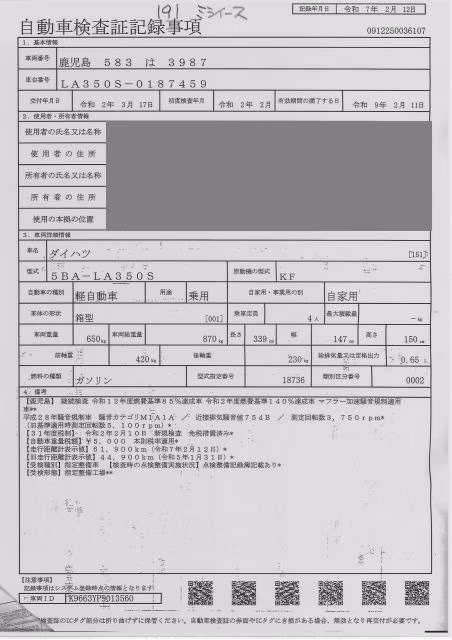 191 ミライース
記録年月日 令和 7年 2月 12日
自動車検査証記録事項
0912250036107
1.基本情報
車両番号 鹿児島 583 は 3987
車台番号 LA350S-0187459
交付年月日 令和 2年 3月 17日 初度検査年月 令和 2年 2月 有効期間の満了する日 令和 9年 2月 11日
2.使用者・所有者情報
使用者の氏名又は名称
使用者の住所
所有者の氏名又は名称
所有者の住所
使用の本拠の位置
3.車両詳細情報
車名 ダイハツ [151]
型式 5BA-LA350S 原動機の型式 KF
自動車の種別 軽自動車 用途 乗用 自家用・事業用の別 自家用
車体の形状 箱型 [001] 乗車定員 4人 最大積載量 -kg
車両重量 650kg 車両総重量 870kg 長さ 339cm 幅 147cm 高さ 150cm
前軸重 420kg 後軸重 230kg 総排気量又は定格出力 0.65L
燃料の種類 ガソリン 型式指定番号 18736 類別区分番号 0002
4.備考
【鹿児島】 継続検査 令和12年度燃費基準85%達成車 令和2年度燃費基準140%達成車 マフラー加速騒音規制適用
車**
平成28年騒音規制車 騒音カテゴリM1A1A / 近接排気騒音値75dB / 測定回転数3,750rpm*
(旧基準適用時測定回転数5,100rpm)*
【31年度税制】 令和2年2月10日 新規検査 免税措置済み*
【自動車重量税額】 ¥5,000 本則税率適用*
【走行距離計表示値】 61,900km (令和7年2月12日)*
【旧走行距離計表示値】 44,900km (令和5年1月31日)*
【受検種別】 指定整備車 【検査時の点検整備実施状況】 点検整備記録簿記載あり*
【受検形態】 指定整備工場**
【注意事項】
記録事項はシステム登録時点の情報となります
車両ID K9663YP9013560
検査証のICタグ部分は折り曲げずに保管ください。自動車検査証の券面やICタグに き損がある場合、無効となり再交付が必要です。